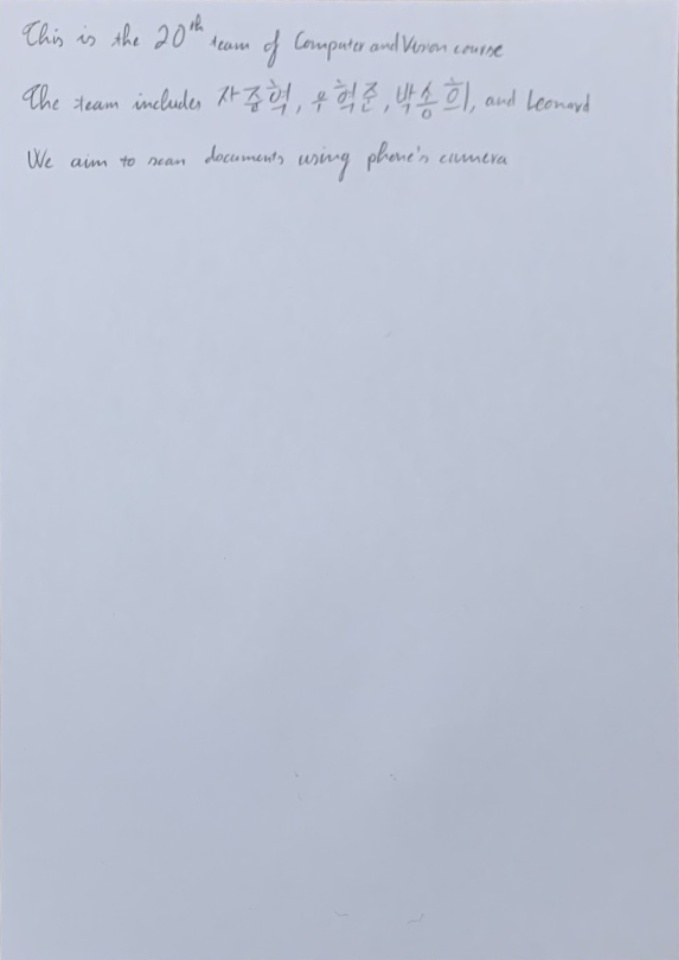 This is the 20th team of Computer and Vision course
The team includes 자중혁, 우혁준, 박송희, and Leonard
We aim to scan documents using phone's camera